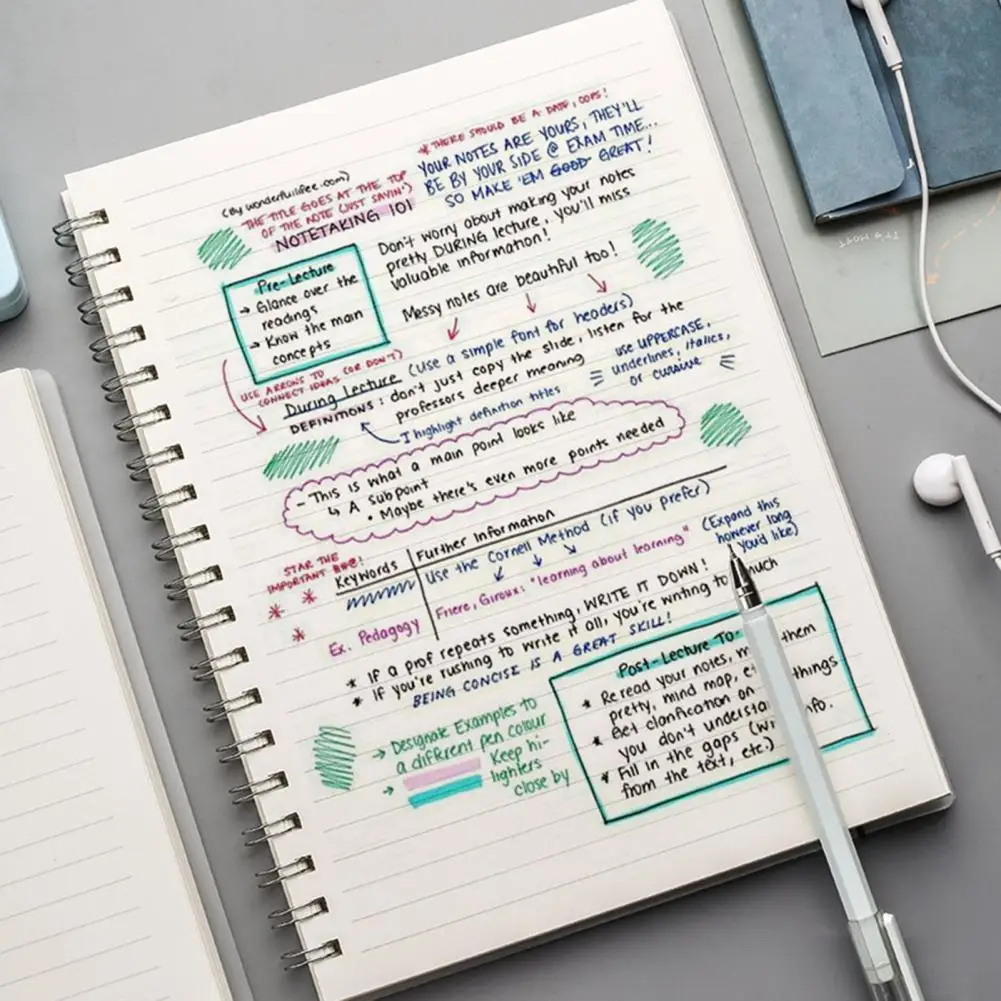 * THERE SHOULD BE A DATE, OOPS!
YOUR NOTES ARE YOURS, THEY'LL
BE BY YOUR SIDE @ EXAM TIME...
SO MAKE 'EM GOOD GREAT!
(By wonderfullifee.com)
THE TITLE GOES AT THE TOP
OF THE NOTE (JUST SAYIN')
NOTETAKING 101
Don't worry about making your notes
pretty DURING lecture, you'll miss
valuable information!
Messy notes are beautiful too!
Pre-Lecture
→ Glance over the
readings
→ Know the main
concepts
USE ARROWS TO
CONNECT IDEAS (OR DON'T)
During Lecture (Use a simple font for headers)
DEFINITIONS: don't just copy the slide, listen for the
professors deeper meaning
I highlight definition titles
use UPPERCASE,
underlines, italics,
or cursive
- This is what a main point looks like
↳ A subpoint
• Maybe there's even more points needed
STAR THE
IMPORTANT
Keywords
Further Information
Use the Cornell Method (if you prefer)
(Expand this
however long
you'd like)
Ex. Pedagogy
Friere, Giroux: "learning about learning"
* If a prof repeats something, WRITE IT DOWN!
* If you're rushing to write it all, you're writing too much
BEING CONCISE IS A GREAT SKILL!
→ Designate Examples to
a different pen colour
→ Keep hi-
lighters
close by
Post-Lecture To-
* Reread your notes, them
pretty, mind map,
* Get clarification on things
you don't
* Fill in the gaps info.
from the text, etc.)